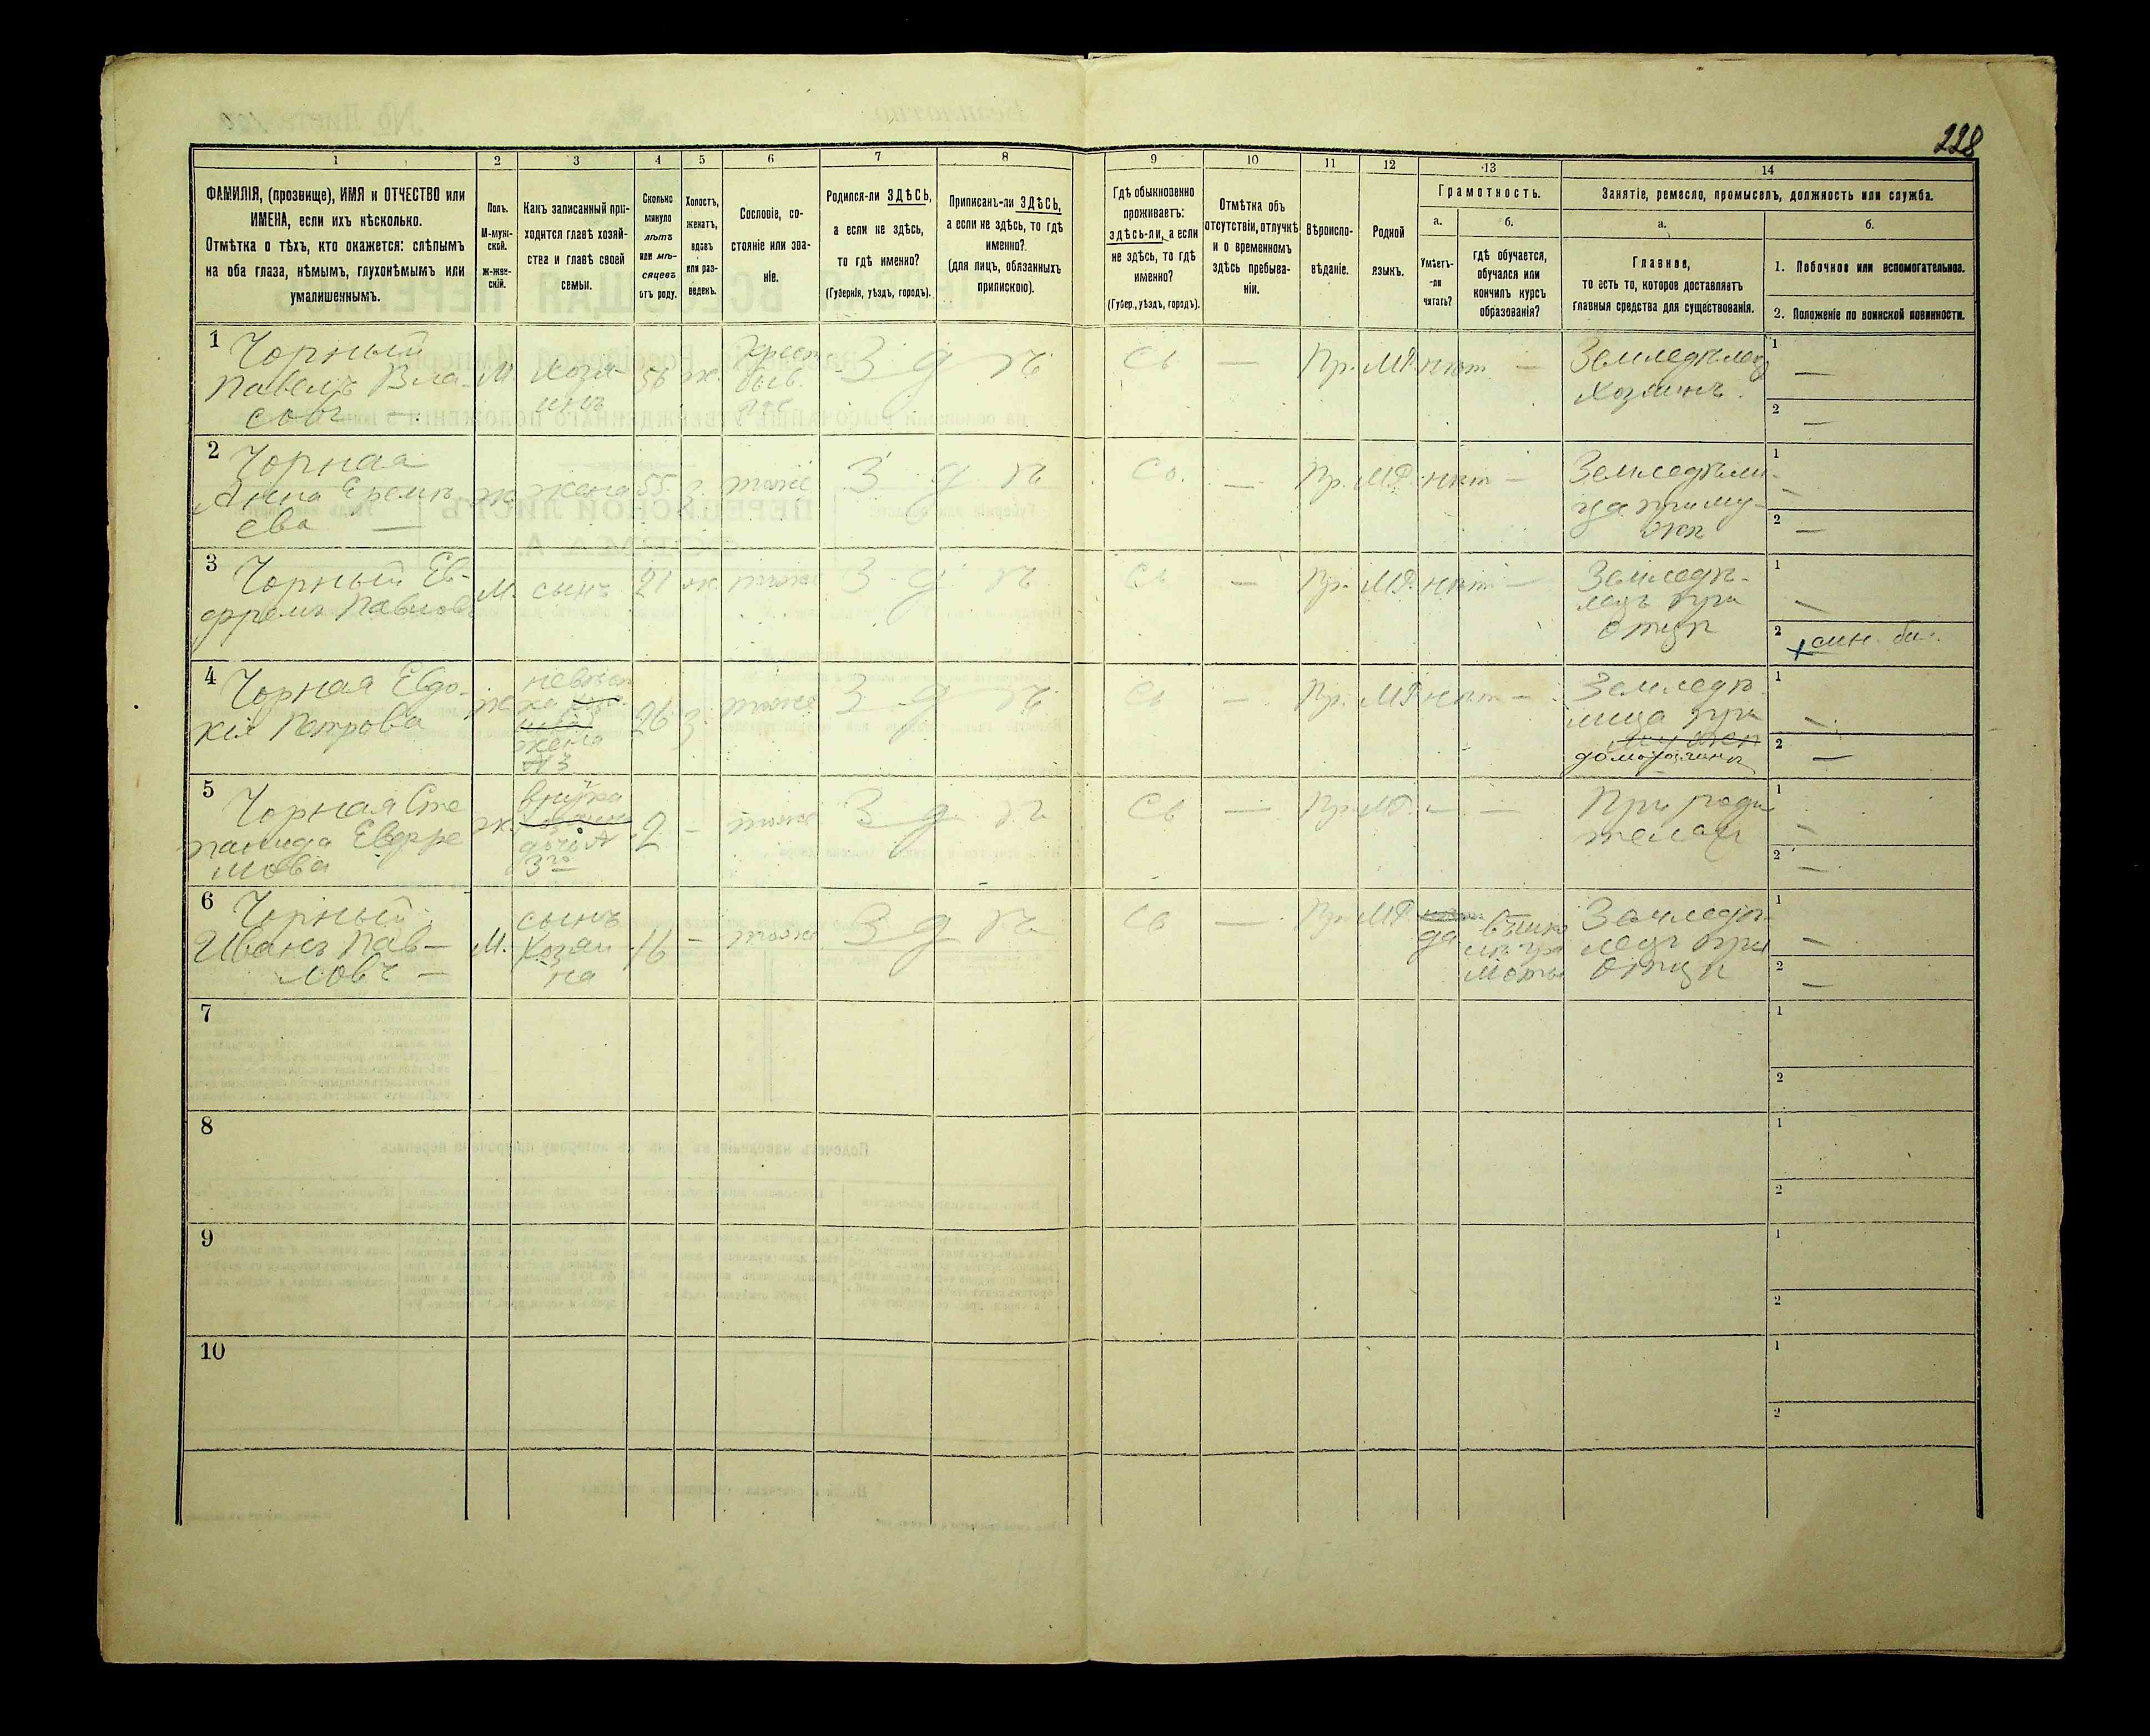 228
1 2 3 4 5 6 7 8 9 10 11 12 13 14
ФАМИЛІЯ, (прозвище), ИМЯ и ОТЧЕСТВО или
ИМЕНА, если ихъ нѣсколько.
Отмѣтка о тѣхъ, кто окажется: слѣпымъ
на оба глаза, нѣмымъ, глухонѣмымъ или
умалишеннымъ.
Полъ.
М-муж-
ской.
ж-жен-
скій.
Какъ записанный при-
ходится главѣ хозяй-
ства и главѣ своей
семьи.
Сколько
минуло
лѣтъ
или мѣ-
сяцевъ
отъ роду.
Холостъ,
женатъ,
вдовъ
или раз-
веденъ.
Сословіе, со-
стояніе или зва-
ніе.
Родился-ли ЗДѢСЬ,
а если не здѣсь,
то гдѣ именно?
(Губернія, уѣздъ, городъ).
Приписанъ-ли ЗДѢСЬ,
а если не здѣсь, то гдѣ
именно?
(для лицъ, обязанныхъ
припискою).
Гдѣ обыкновенно
проживаетъ:
здѣсь-ли, а если
не здѣсь, то гдѣ
именно?
(Губер., уѣздъ, городъ).
Отмѣтка объ
отсутствіи, отлучкѣ
и о временномъ
здѣсь пребыва-
ніи.
Вѣроиспо-
вѣданіе.
Родной
языкъ.
Грамотность.
а.
Умѣетъ-
-ли
читать?
б.
гдѣ обучается,
обучался или
кончилъ курсъ
образованія?
Занятіе, ремесло, промыселъ, должность или служба.
а.
Главное,
то есть то, которое доставляетъ
главныя средства для существованія.
б.
1. Побочное или вспомогательное.
2. Положеніе по воинской повинности.
1 Чорный
Павелъ Вла-
совъ —
М
Хозя-
инъ
56
ж.
Крест.
быв.
З д ѣ
сь
—
Пр.
МР.
нѣтъ
—
Земледѣлец
Хозяинъ.
1 —
2 —
2 Чорная
Анна Еремѣ-
ева —
ж
жена
55
З.
тоже
З д ѣ
сь
—
Пр.
МР.
нѣт
—
Земледѣли-
ца при му-
жѣ
1 —
2 —
3 Чорный Ев-
фремъ Павлов
М.
сынъ
21
ж.
тоже
З д ѣ
сь
—
Пр.
МР.
нѣт
—
Земледѣ-
лецъ при
отцѣ
1 —
2
4 Чорная Евдо-
кія Петрова
ж
невѣст
ка
жена
№ 3
26
З.
тоже
З д ѣ
сь
—
Пр.
МР
нѣт
—
Земледѣ-
лица при
мужѣ
1 —
2 —
5 Чорная Сте
панида Евфре
мова
ж.
внучка
дочь №
3го
2
—
тоже
З д ѣ
сь
—
Пр.
МР.
—
—
При роди
телях
1 —
2 —
6 Чорный
Иванъ Пав-
ловъ —
М.
сынъ
Хозяи
на
16
—
тоже
З д ѣ
сь
—
Пр.
МР.
да
Земледѣ-
лецъ при
отцѣ
1 —
2 —
7
1
2
8
1
2
9
1
2
10
1
2